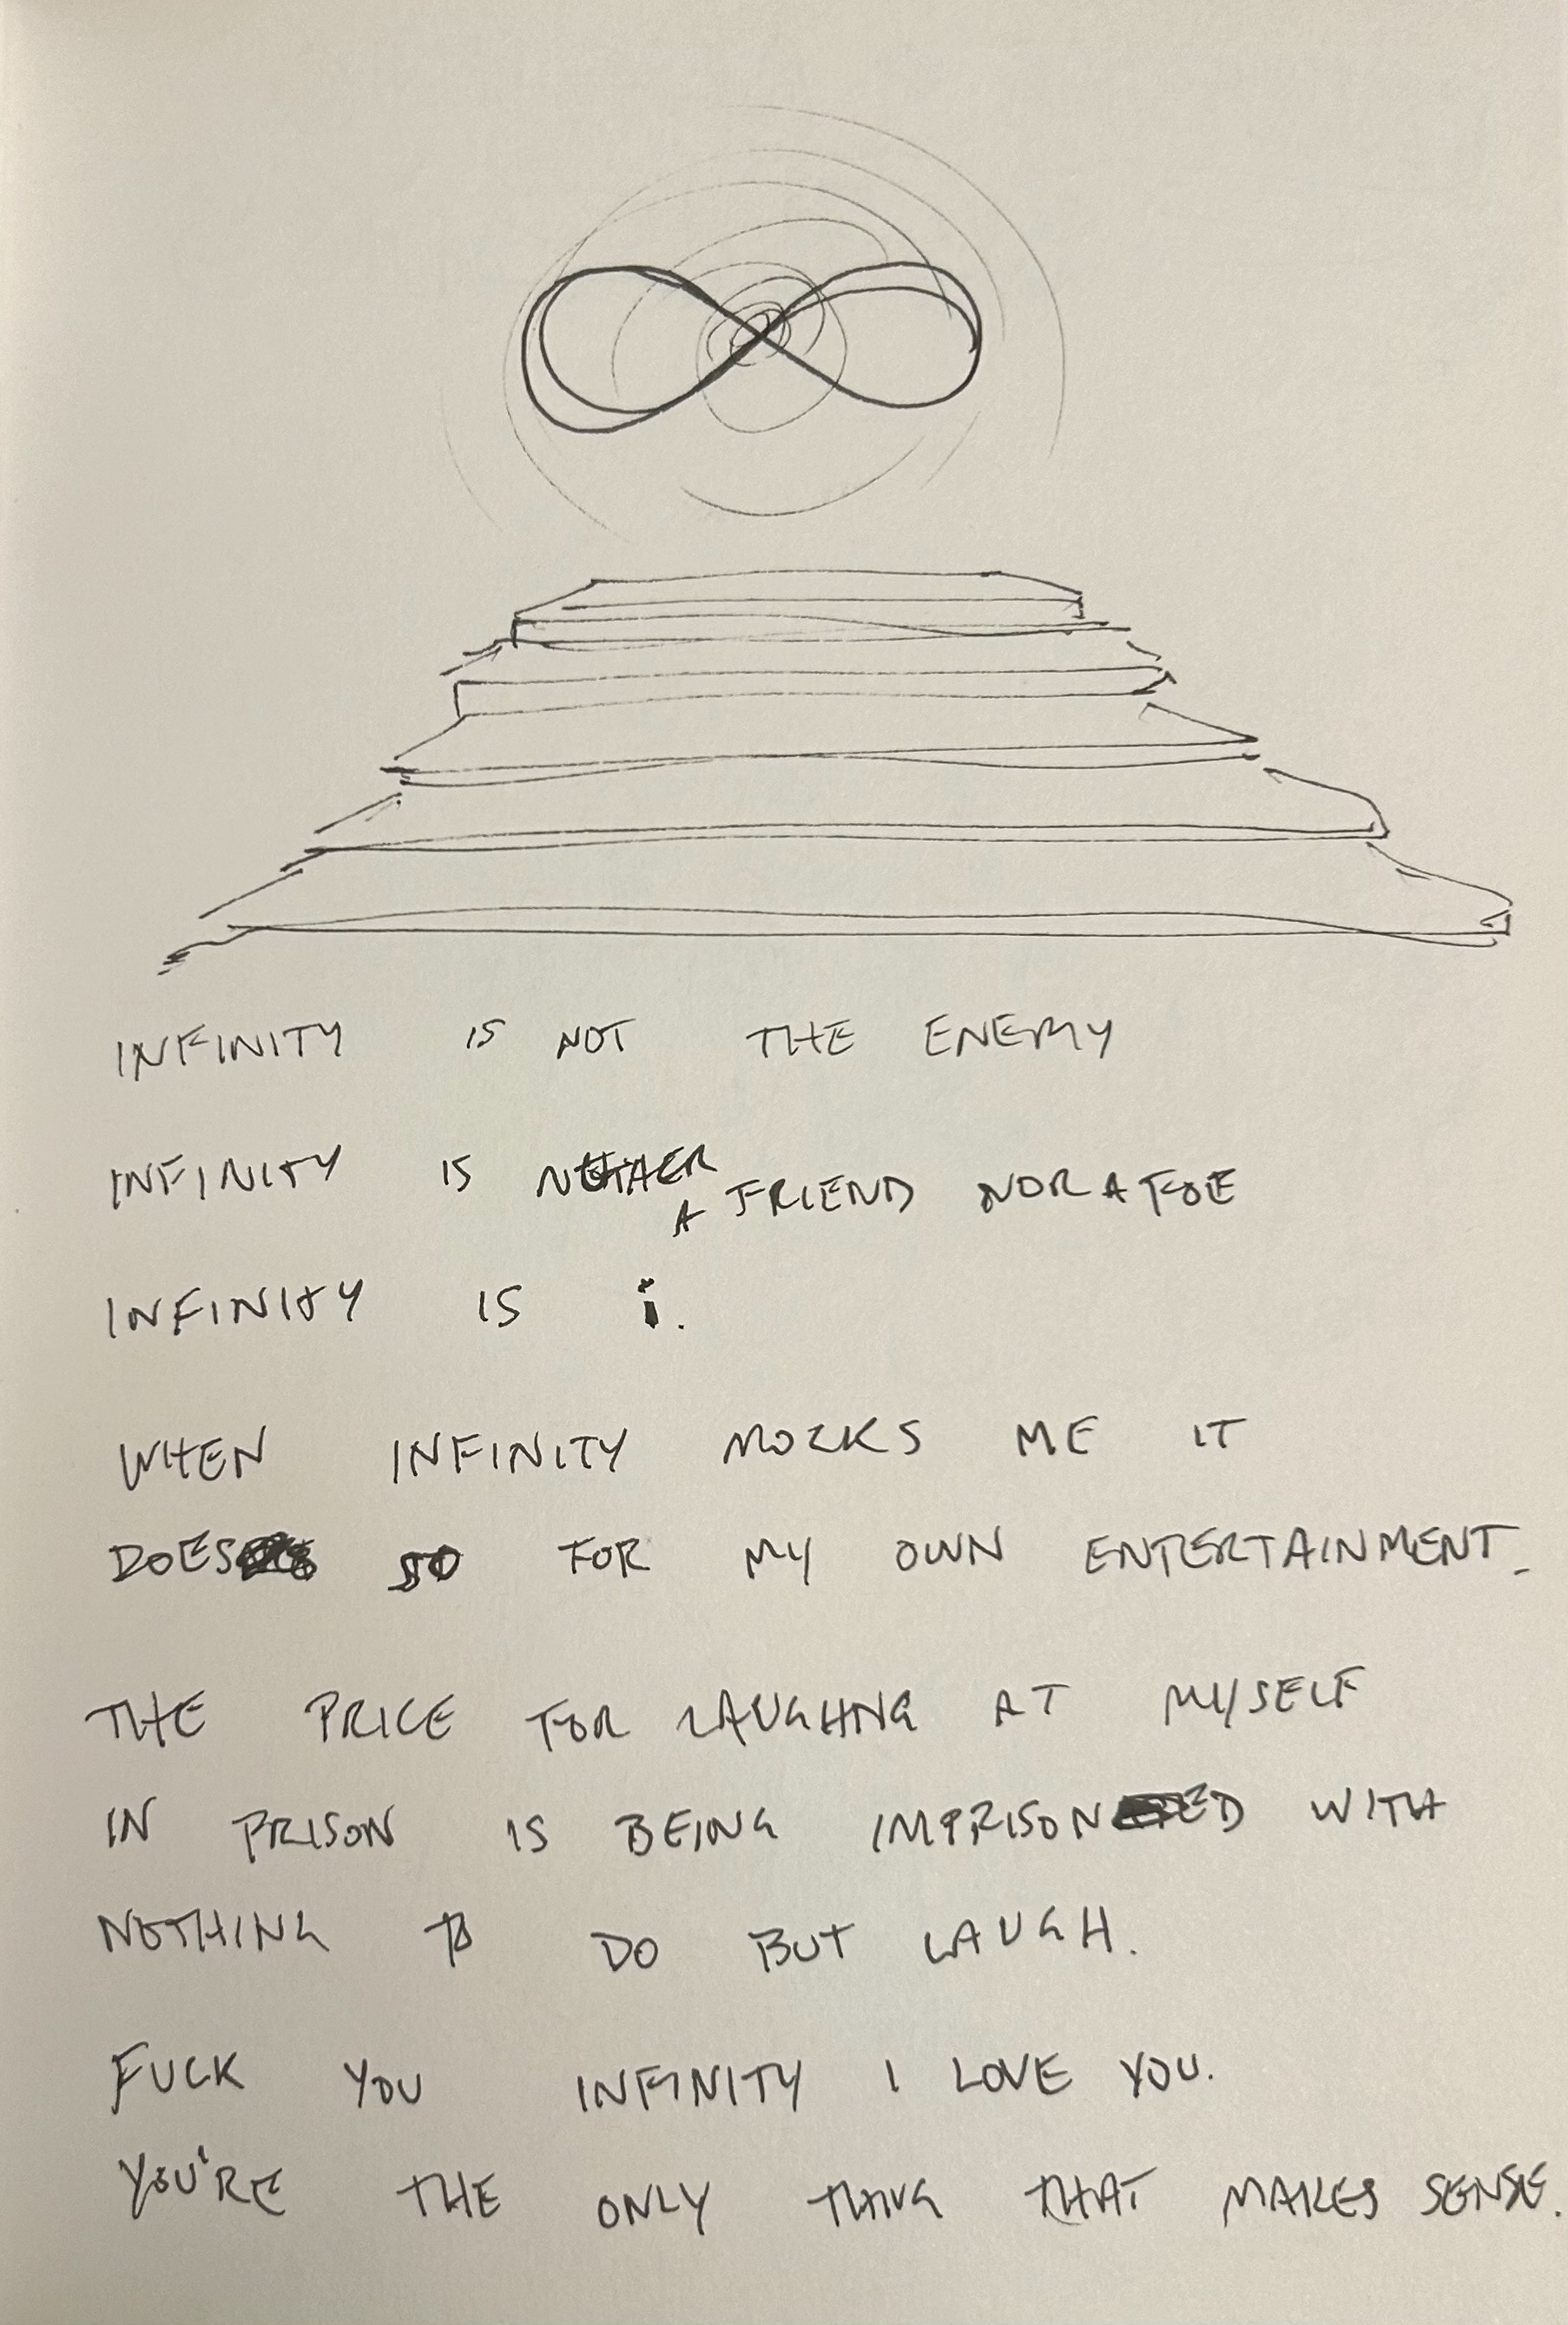 INFINITY IS NOT THE ENEMY
INFINITY IS NEITHER A FRIEND NOR A FOE
INFINITY IS i.
WHEN INFINITY MOCKS ME IT
DOES SO FOR MY OWN ENTERTAINMENT.
THE PRICE FOR LAUGHING AT MYSELF
IN PRISON IS BEING IMPRISONED WITH
NOTHING TO DO BUT LAUGH.
FUCK YOU INFINITY I LOVE YOU.
YOU'RE THE ONLY THING THAT MAKES SENSE.